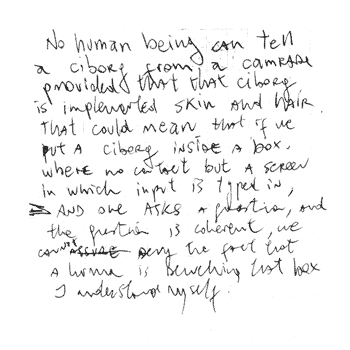 No human being can tell
a ciborg from a camrade
provided that that ciborg
is implemented skin and hair.
That could mean that if we
put a ciborg inside a box.
where no contact but a screen
in which input is typed in,
and one asks a question, and
the question is coherent, we
cannot deny the fact that
a human is that box
I understand myself.